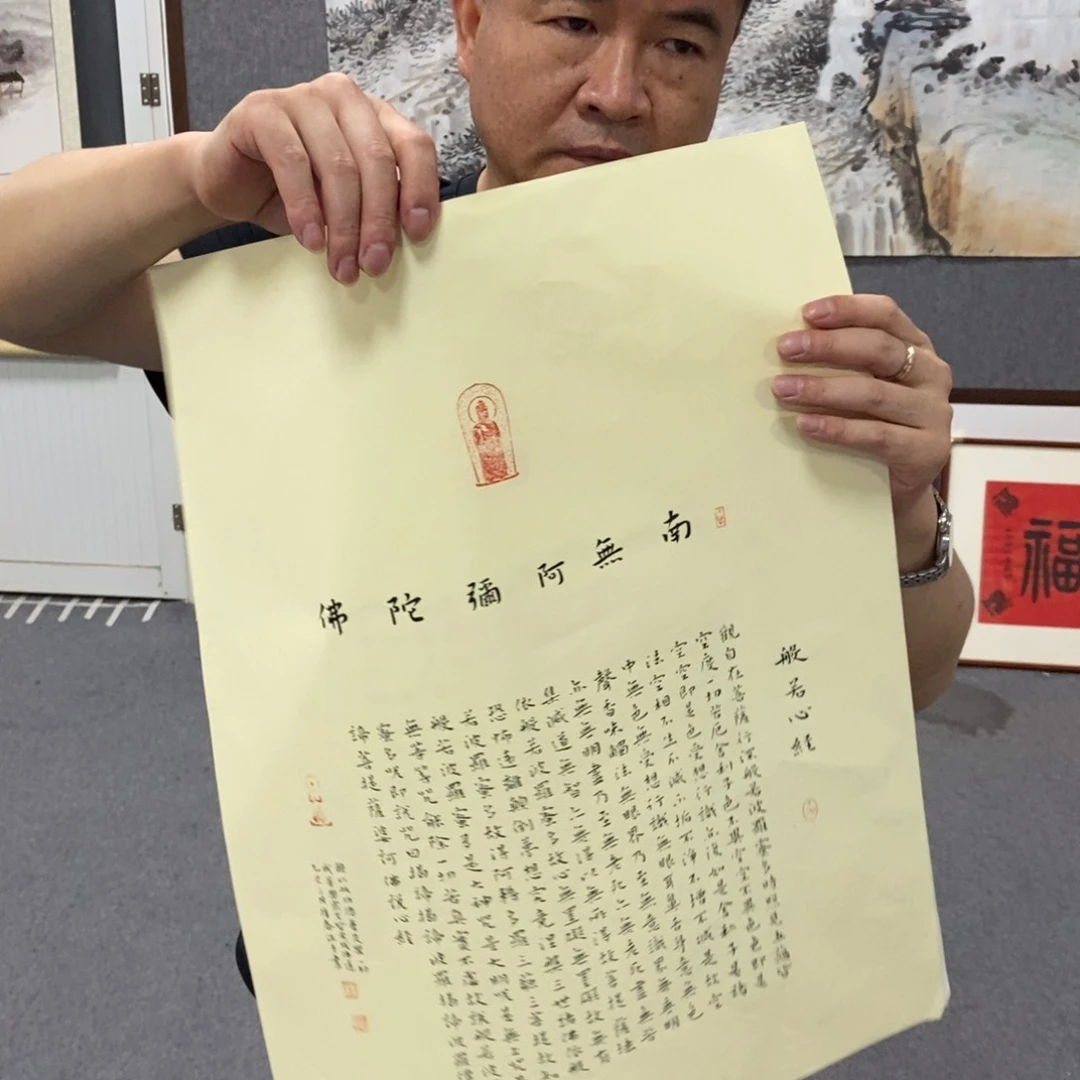 南無阿彌陀佛
般若心經
觀自在菩薩行深般若波羅蜜多時照見五蘊皆
空度一切苦厄舍利子色不異空空不異色色即是
空空即是色受想行識亦復如是舍利子是諸
法空相不生不滅不垢不淨不增不減是故空
中無色無受想行識無眼耳鼻舌身意無色
聲香味觸法無眼界乃至無意識界無無明
亦無無明盡乃至無老死亦無老死盡無苦
集滅道無智亦無得以無所得故菩提薩埵
依般若波羅蜜多故心無罣礙無罣礙故無有
恐怖遠離顛倒夢想究竟涅槃三世諸佛依般
若波羅蜜多故得阿耨多羅三藐三菩提故知
般若波羅蜜多是大神咒是大明咒是無上咒
無等等咒能除一切苦真實不虛故說般若波
蜜多咒即說咒曰揭諦揭諦波羅揭諦波羅僧
諦菩提薩婆訶佛說心經
福